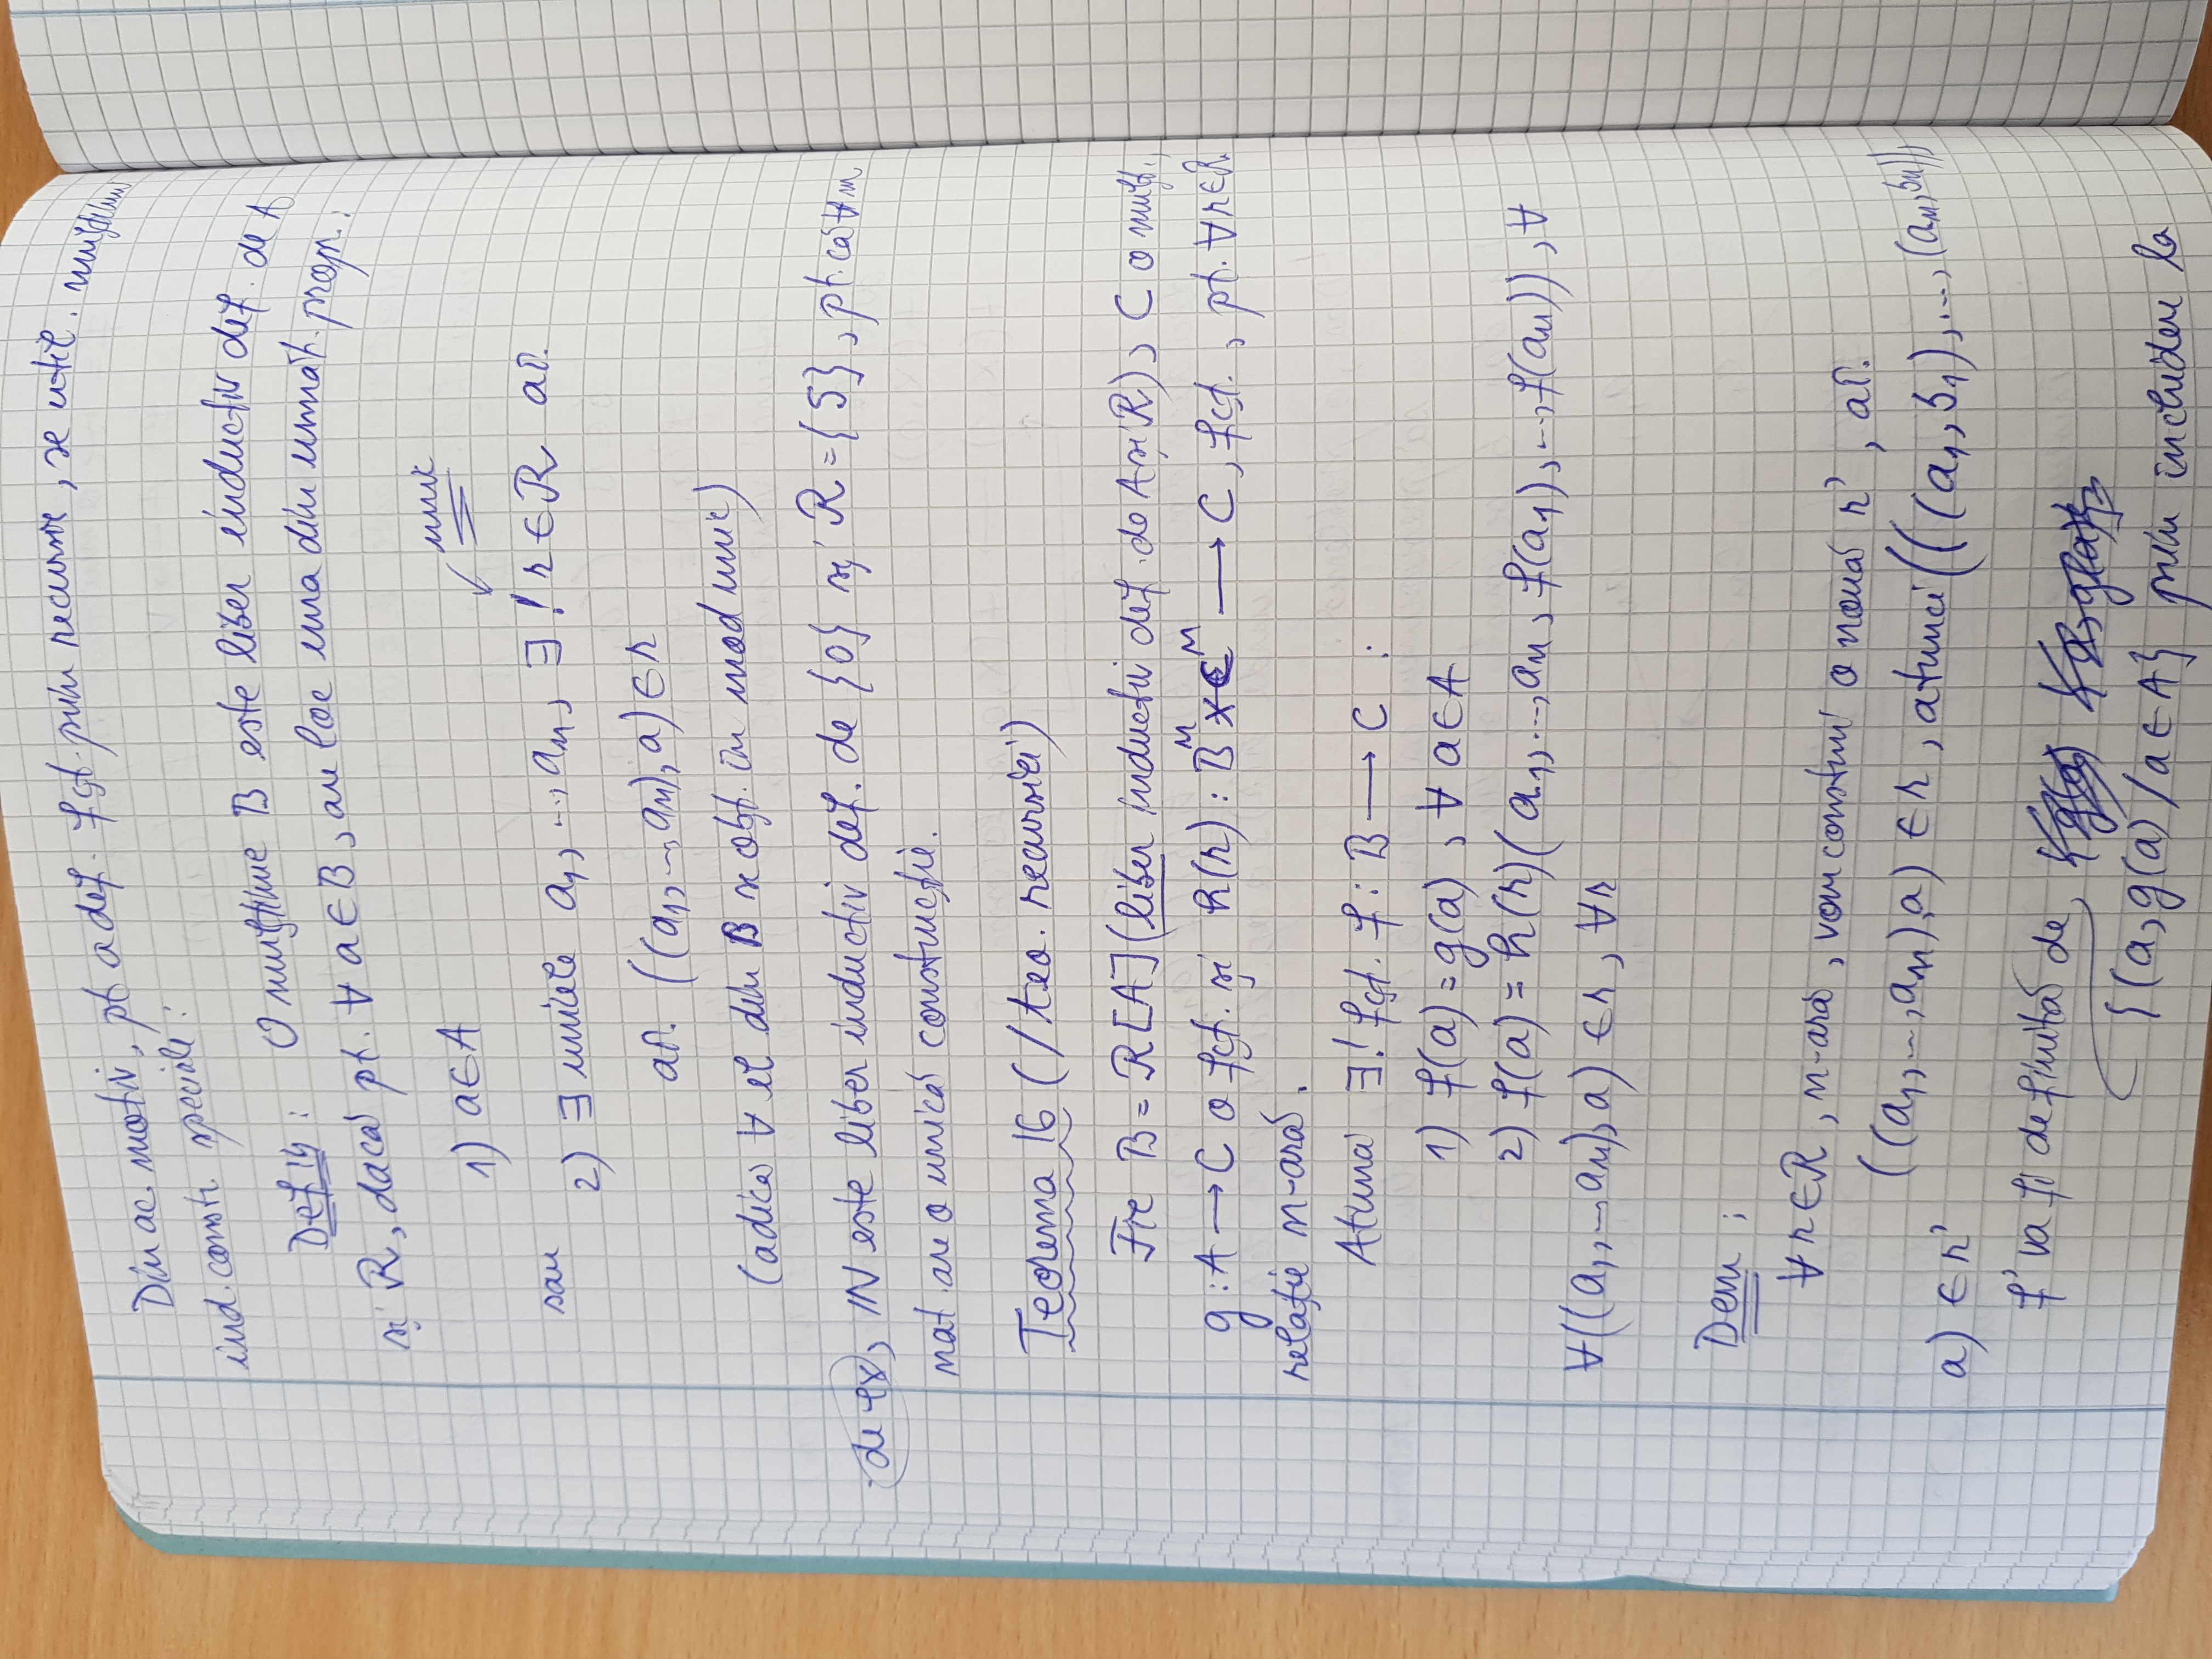 Din ac. motiv, pt a def. fçt. prin recursie, se util. mulțimi
ind. constr. speciale:
Def 14: O mulțime B este liber inductiv def. de A
și R, dacă pt. ∀ a∈B, are loc una din următ. propr.:
unic
1) a∈A
sau
2) ∃ unicele a₁, ..., aₙ, ∃! r∈R aî.
aî. ((a₁, ..., aₙ), a) ∈ r
(adică ∀ el din B se obț. în mod unic)
de ex, ℕ este liber inductiv def. de {0} și R = {S}, pt. că ∀ n
nat. are o unică construcție.
Teorema 16 (/teo. recursiei)
Fie B = R[A] (liber inductiv def. de A și R), C o mulț.,
g : A → C o fçt. și h(r) : Bⁿ × Cⁿ → C, fçt., pt. ∀ r∈R
relație n-ară.
Atunci ∃! fçt. f : B → C :
1) f(a) = g(a), ∀ a∈A
2) f(a) = h(r)(a₁, ..., aₙ, f(a₁), ..., f(aₙ)), ∀
∀((a₁, ..., aₙ), a) ∈ r, ∀r
Dem :
∀ r∈R, n-ară, vom construi o nouă r', aî.
((a₁, ..., aₙ), a) ∈ r, atunci (((a₁, b₁), ..., (aₙ, bₙ)),
a) ∈ r'
f' va fi definită de
{(a, g(a) / a∈A} prin includere la